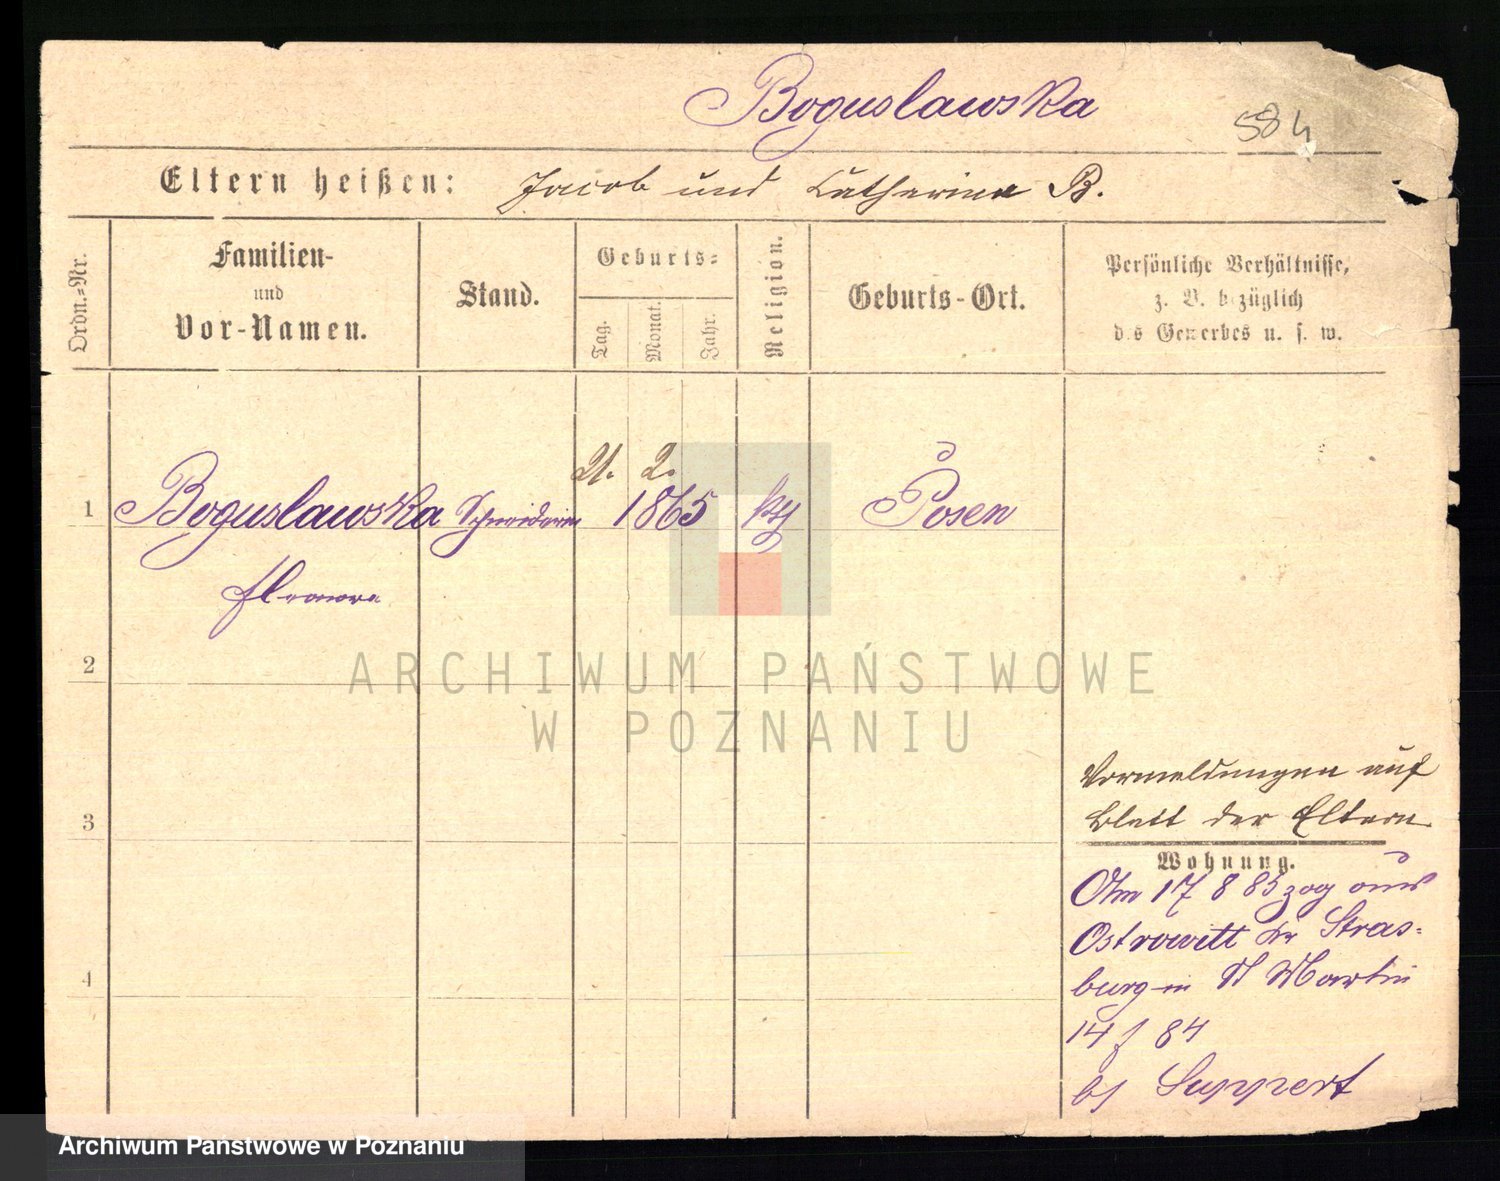 Boguslawska
584
Eltern heißen: Jacob und Catharina B.
Ordn.-Nr.
Familien-
und
Vor-Namen.
Stand.
Geburts-
Tag.
Monat.
Jahr.
Religion.
Geburts-Ort.
Persönliche Verhältnisse,
z. B. bezüglich
des Gewerbes u. s. w.
21. 2.
1 Boguslawska Schneiderin 1865 kth Posen
Eleonora
2
ARCHIWUM PAŃSTWOWE
W POZNANIU
Vormeldungen auf
3 Blatt der Eltern
Wohnung.
Am 17 8 85 zog aus
Ostrowitt Kr Stras-
4 burg n St Martin
14 f 84
bj Suppert
Archiwum Państwowe w Poznaniu